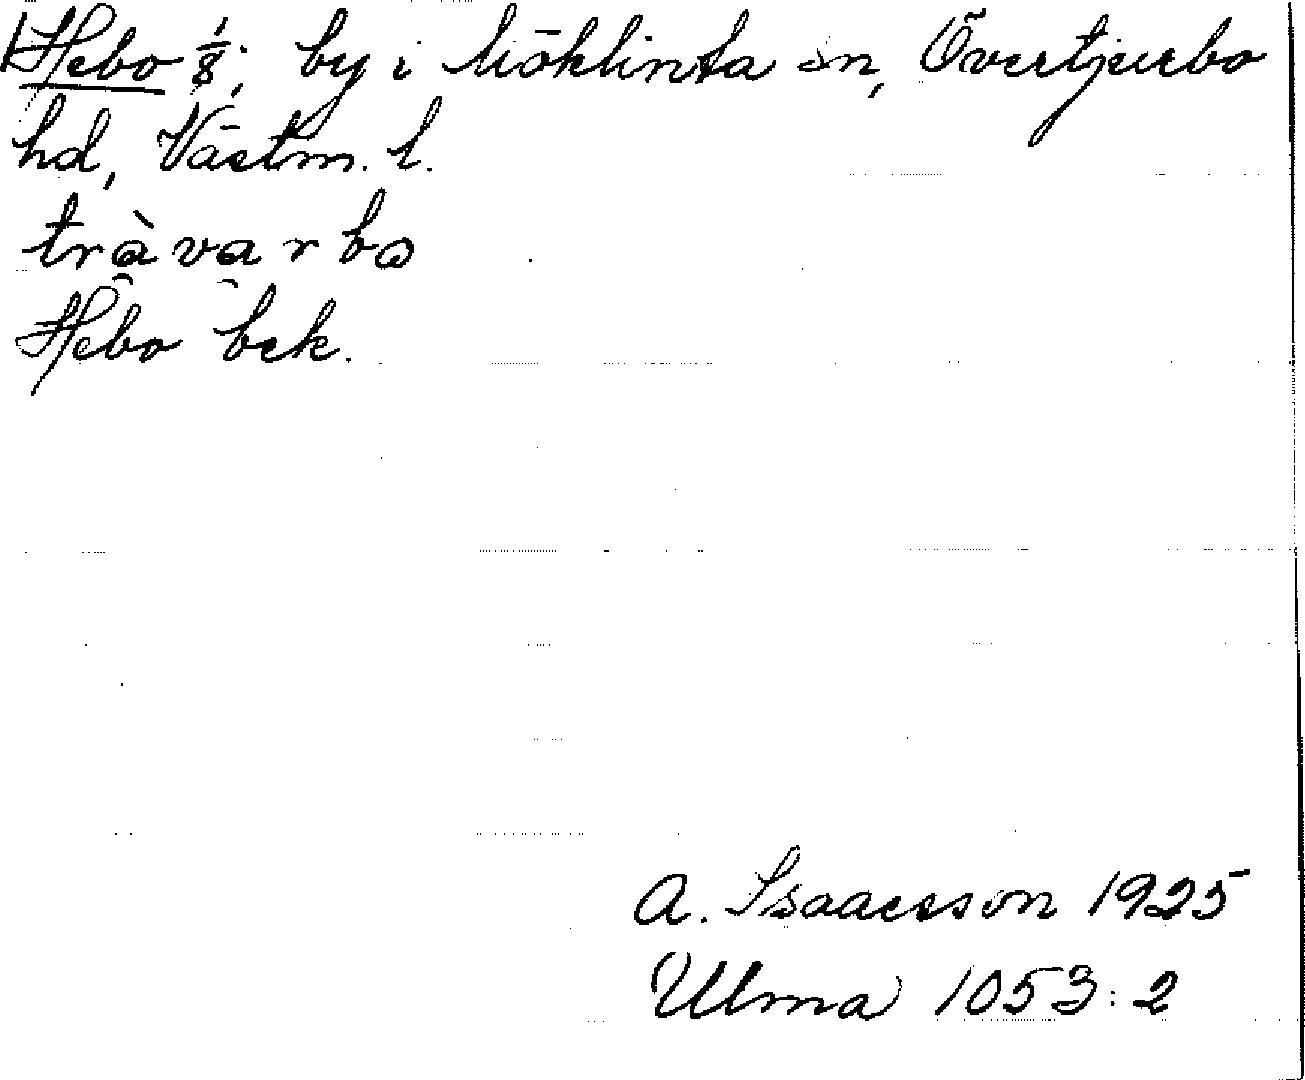 Hebo 1/8; by i Möklinta sn, Övertjurbo
hd, Västm. l.
tràvarbo
Hebo bek.
A. Isaacsson 1925
Ulma 1053:2